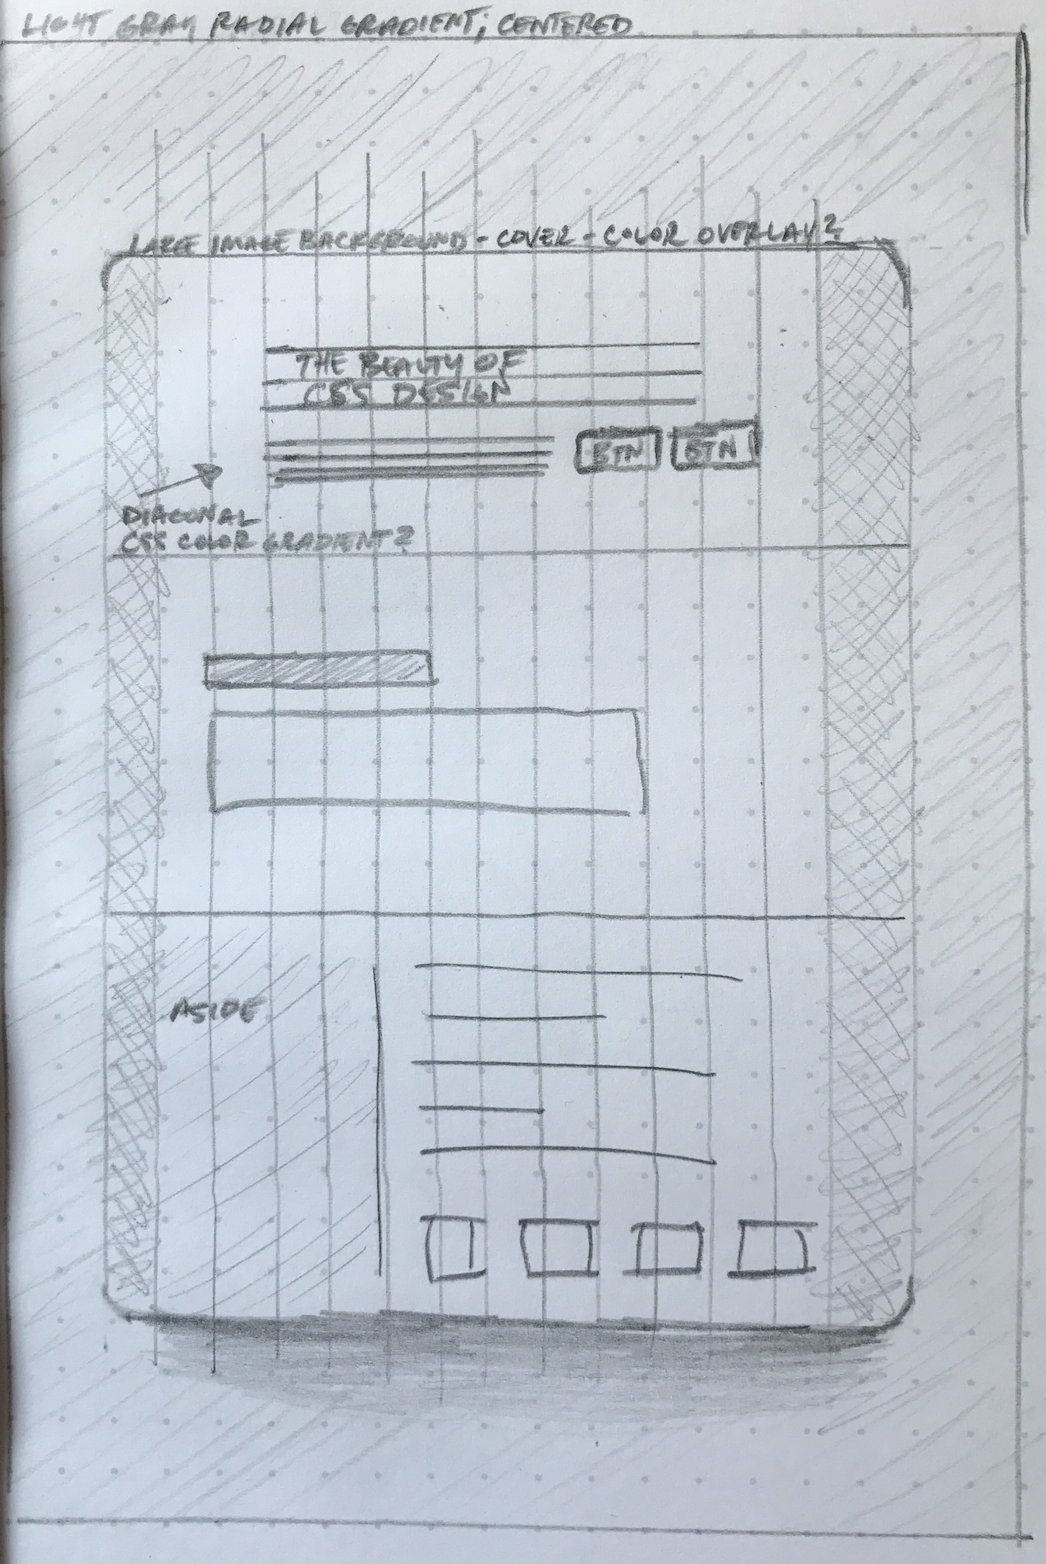 LIGHT GRAY RADIAL GRADIENT; CENTERED
LARGE IMAGE BACKGROUND - COVER - COLOR OVERLAY?
THE BEAUTY OF
CSS DESIGN
BTN BTN
DIAGONAL
CSS COLOR GRADIENT?
ASIDE